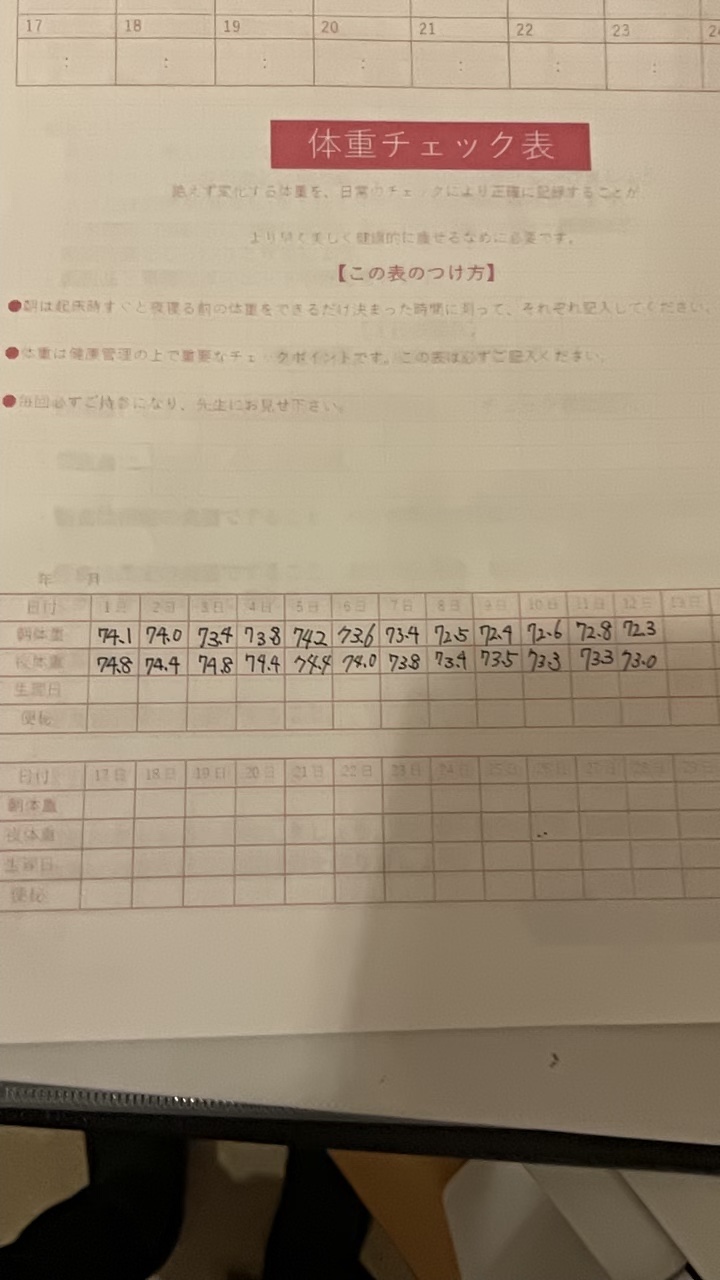 17 18 19 20 21 22 23
: : : : : : :
体重チェック表
絶えず変化する体重を、日常のチェックにより正確に記録することが
より早く美しく健康的に痩せるために必要です。
【この表のつけ方】
●朝は起床時すぐと夜寝る前の体重をできるだけ決まった時間に測って、それぞれ記入してください。
●体重は健康管理の上で重要なチェックポイントです。この表は必ずご記入ください。
●毎回必ずご持参になり、先生にお見せ下さい。
年 月
日付 1日 2日 3日 4日 5日 6日 7日 8日 9日 10日 11日 12日 13日
朝体重 74.1 74.0 73.4 73.8 74.2 73.6 73.4 72.5 72.4 72.6 72.8 72.3
夜体重 74.8 74.4 74.8 74.4 74.4 74.0 73.8 73.4 73.5 73.3 73.3 73.0
生理日
便秘
日付 17日 18日 19日 20日 21日 22日 23日 24日 25日 26日 27日 28日 29日
朝体重
夜体重
生理日
便秘